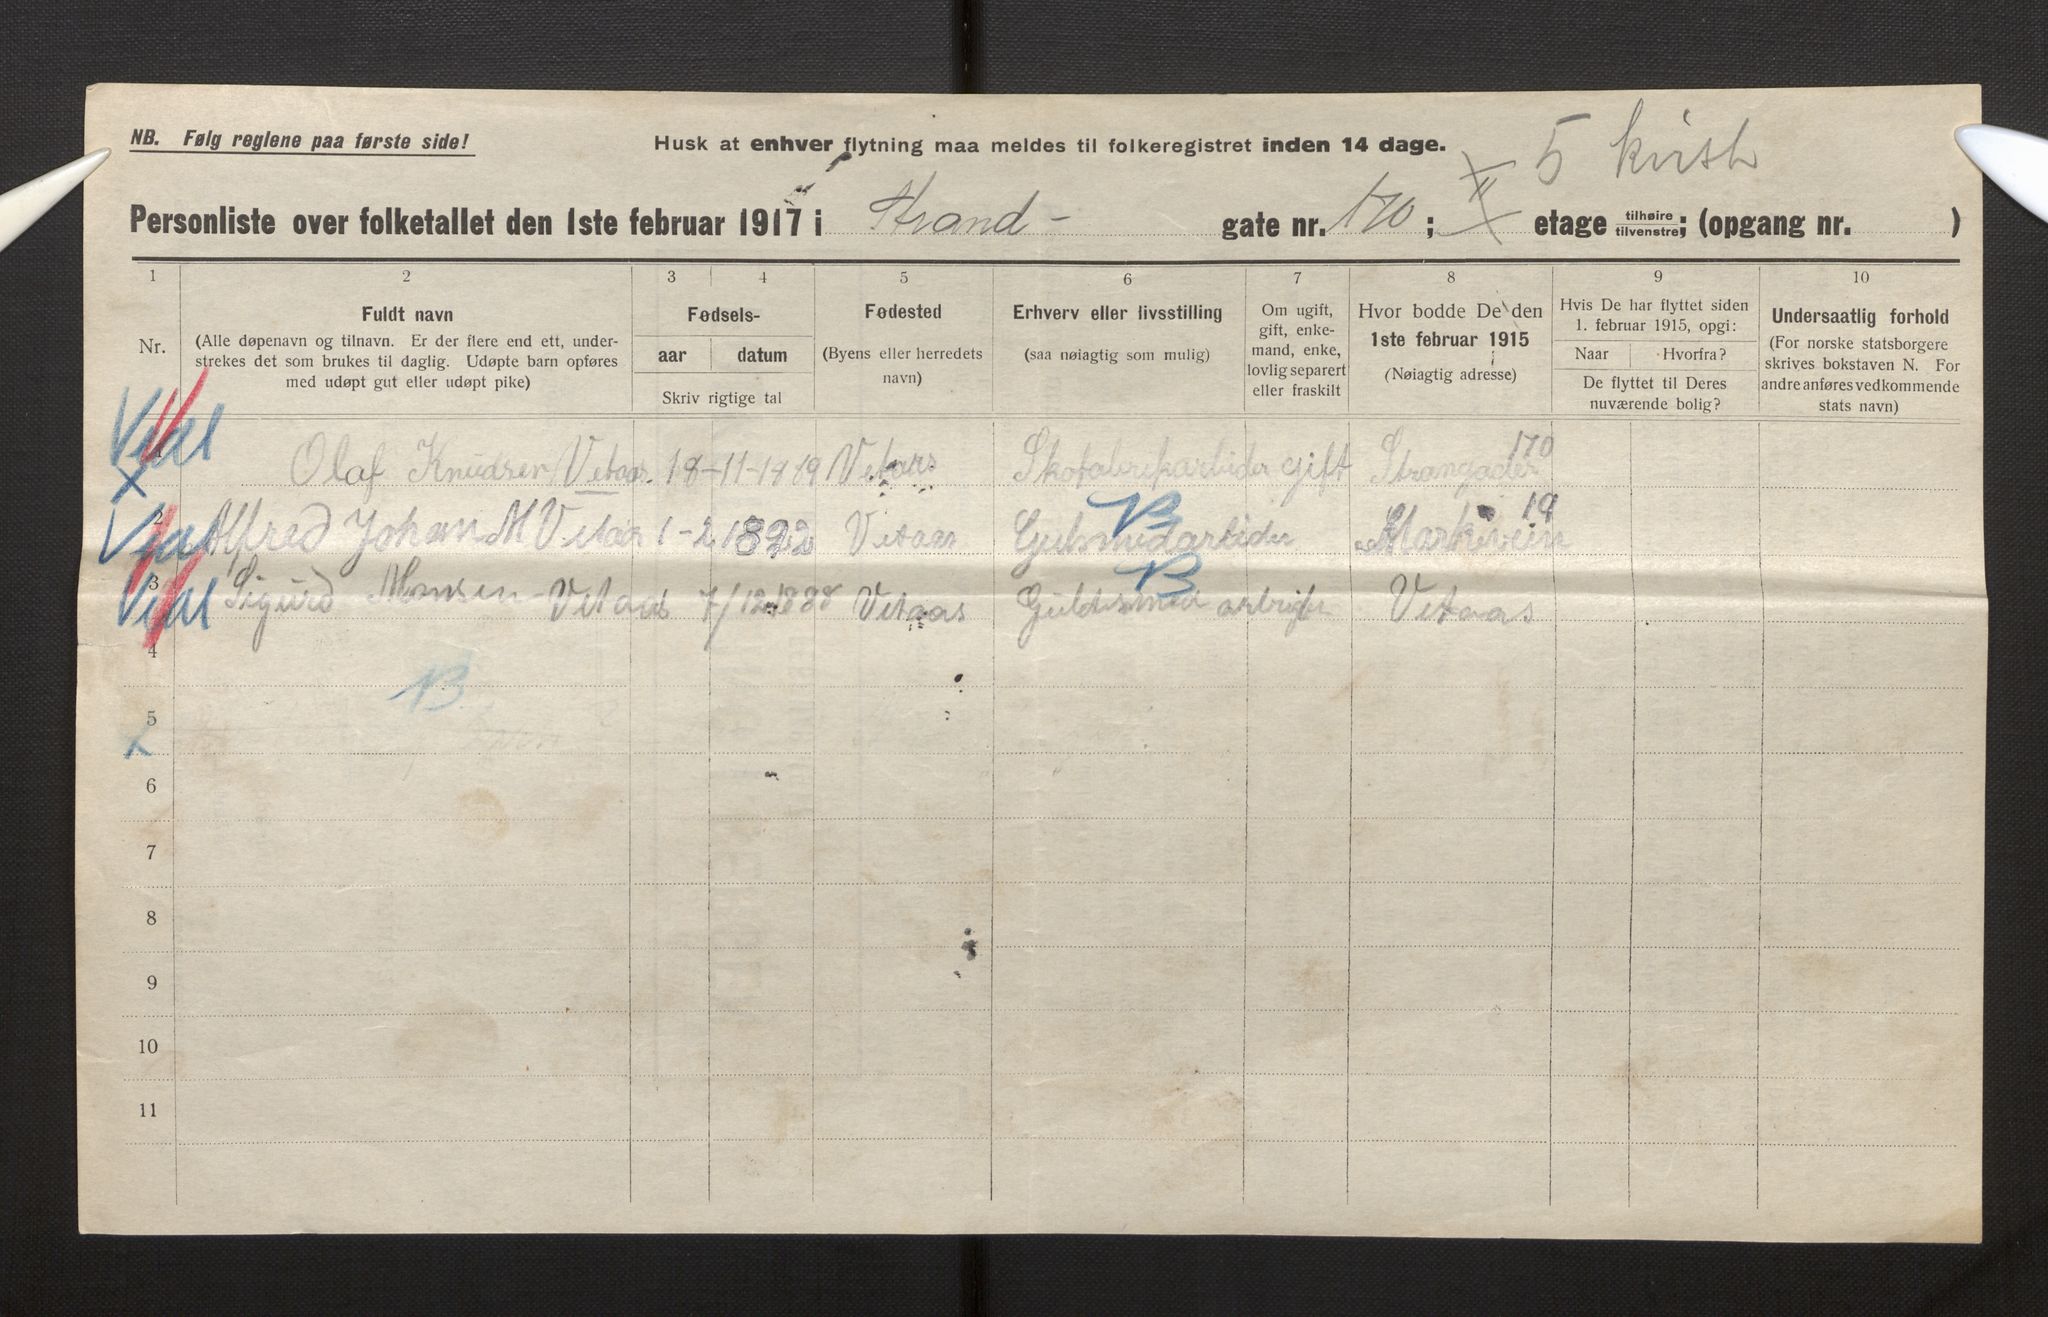 NB. Følg reglene paa første side!
Husk at enhver flytning maa meldes til folkeregistret inden 14 dage.
5 kvist
Personliste over folketallet den 1ste februar 1917 i Strand- gate nr. 170; II etage tilhøire tilvenstre; (opgang nr. )
1 2 3 4 5 6 7 8 9 10
Nr.
Fuldt navn
(Alle døpenavn og tilnavn. Er der flere end ett, under-
strekes det som brukes til daglig. Udøpte barn opføres
med udøpt gut eller udøpt pike)
Fødsels-
aar datum
Skriv rigtige tal
Fødested
(Byens eller herredets
navn)
Erhverv eller livsstilling
(saa nøiagtig som mulig)
Om ugift,
gift, enke-
mand, enke,
lovlig separert
eller fraskilt
Hvor bodde De den
1ste februar 1915
(Nøiagtig adresse)
Hvis De har flyttet siden
1. februar 1915, opgi:
Naar Hvorfra?
De flyttet til Deres
nuværende bolig?
Undersaatlig forhold
(For norske statsborgere
skrives bokstaven N. For
andre anføres vedkommende
stats navn)
1 Olaf Knudsen Vetaas 18-11-1889 Vetaas Skofabrekarbeider gift Strangaden 170
2 Alfred Johan M Vetaas 1-2 1892 Vetaas Gulsmedarbeider Markevein 19
3 Sigurd Monsen Vetaas 7/12 1888 Vetaas Guldsmed arbeider Vetaas
B
B
4
B
5
6
7
8
9
10
11